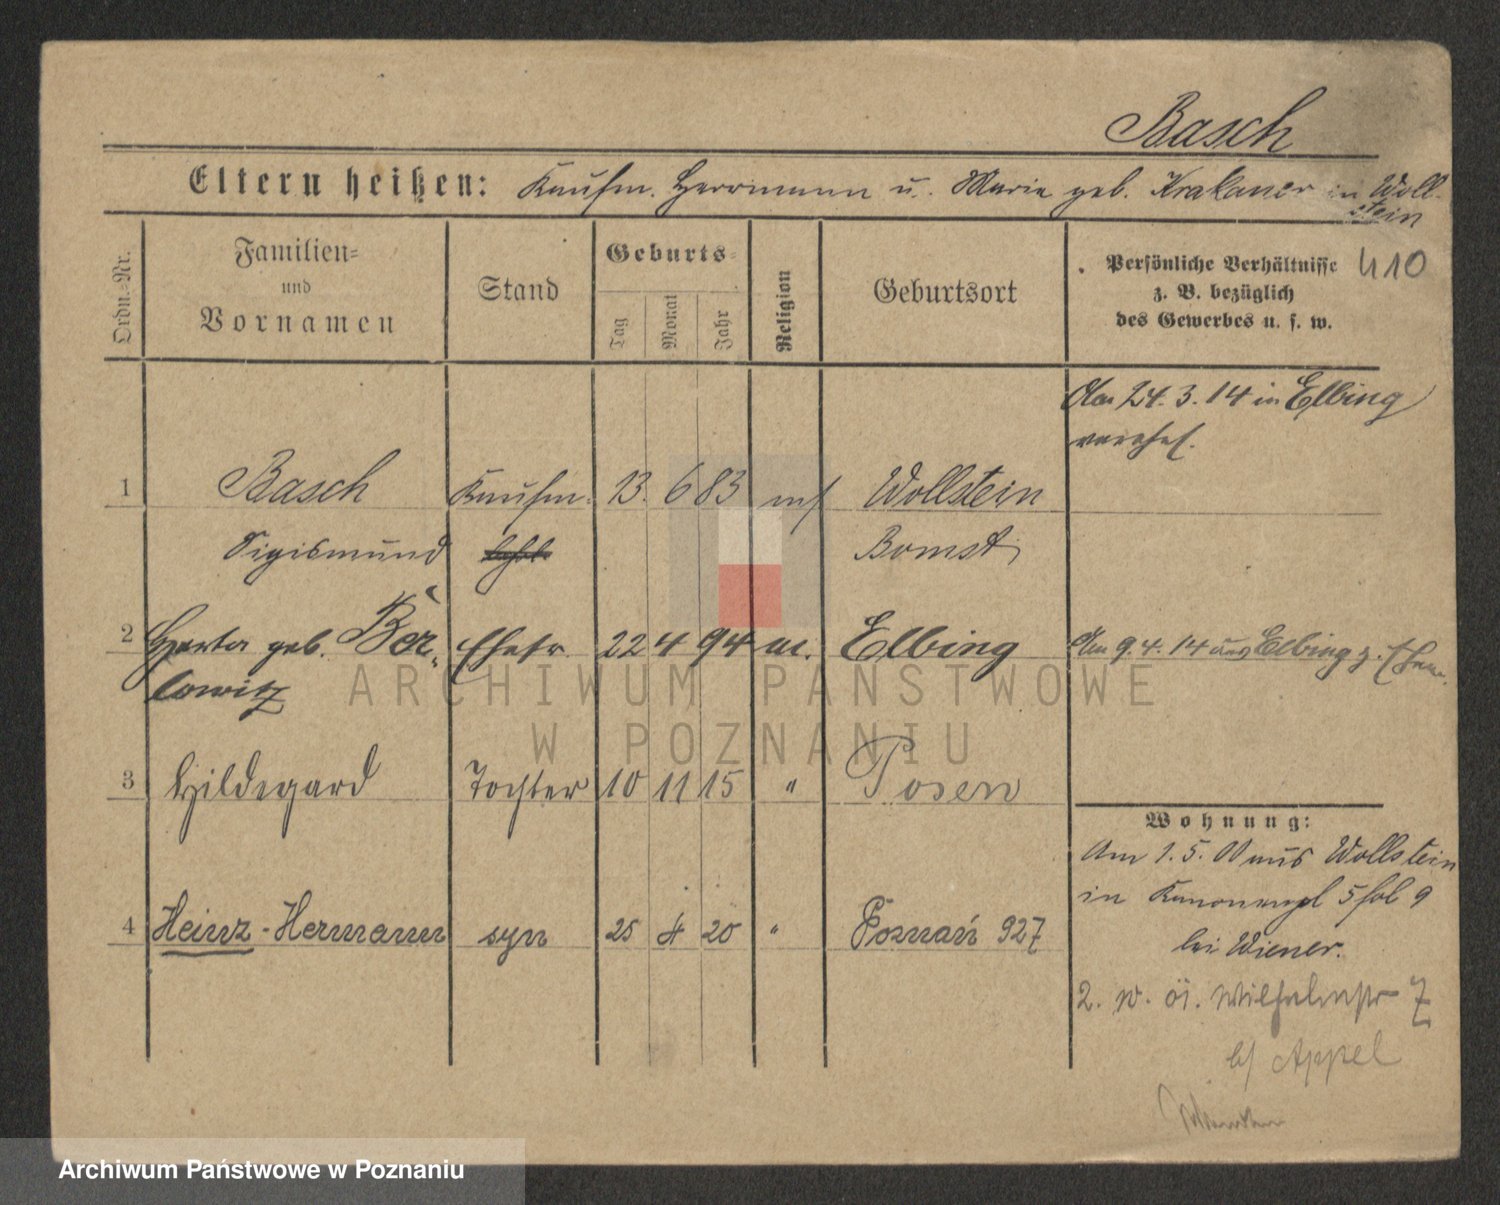 Basch
Eltern heißen: Kaufm. Herrmann u. Marie geb. Krakauer in Woll-
stein
Ordn.-Nr.
Familien-
und
Vornamen
Stand
Geburts-
Tag
Monat
Jahr
Religion
Geburtsort
Persönliche Verhältnisse
z. B. bezüglich
des Gewerbes u. s. w.
410
Am 24.3.14 in Elbing
verehel.
1 Basch Kaufm. 13. 6 83 Wollstein
Sigismund Bomst
2 Herta geb. Ber- Ehefr. 22 4 94 m. Elbing Am 9.4.14 aus Elbing z.
lowitz
3 Hildegard Tochter 10 11 15 " Posen
Wohnung:
Am 1.5.00 aus Wollstein
in Kanonenpl 5 9
bei Wiener.
4 Heinz-Hermann syn 25 4 20 " Poznań 927
2. Wilhelmstr 7
b/ Appel
ARCHIWUM PAŃSTWOWE
W POZNANIU
Archiwum Państwowe w Poznaniu